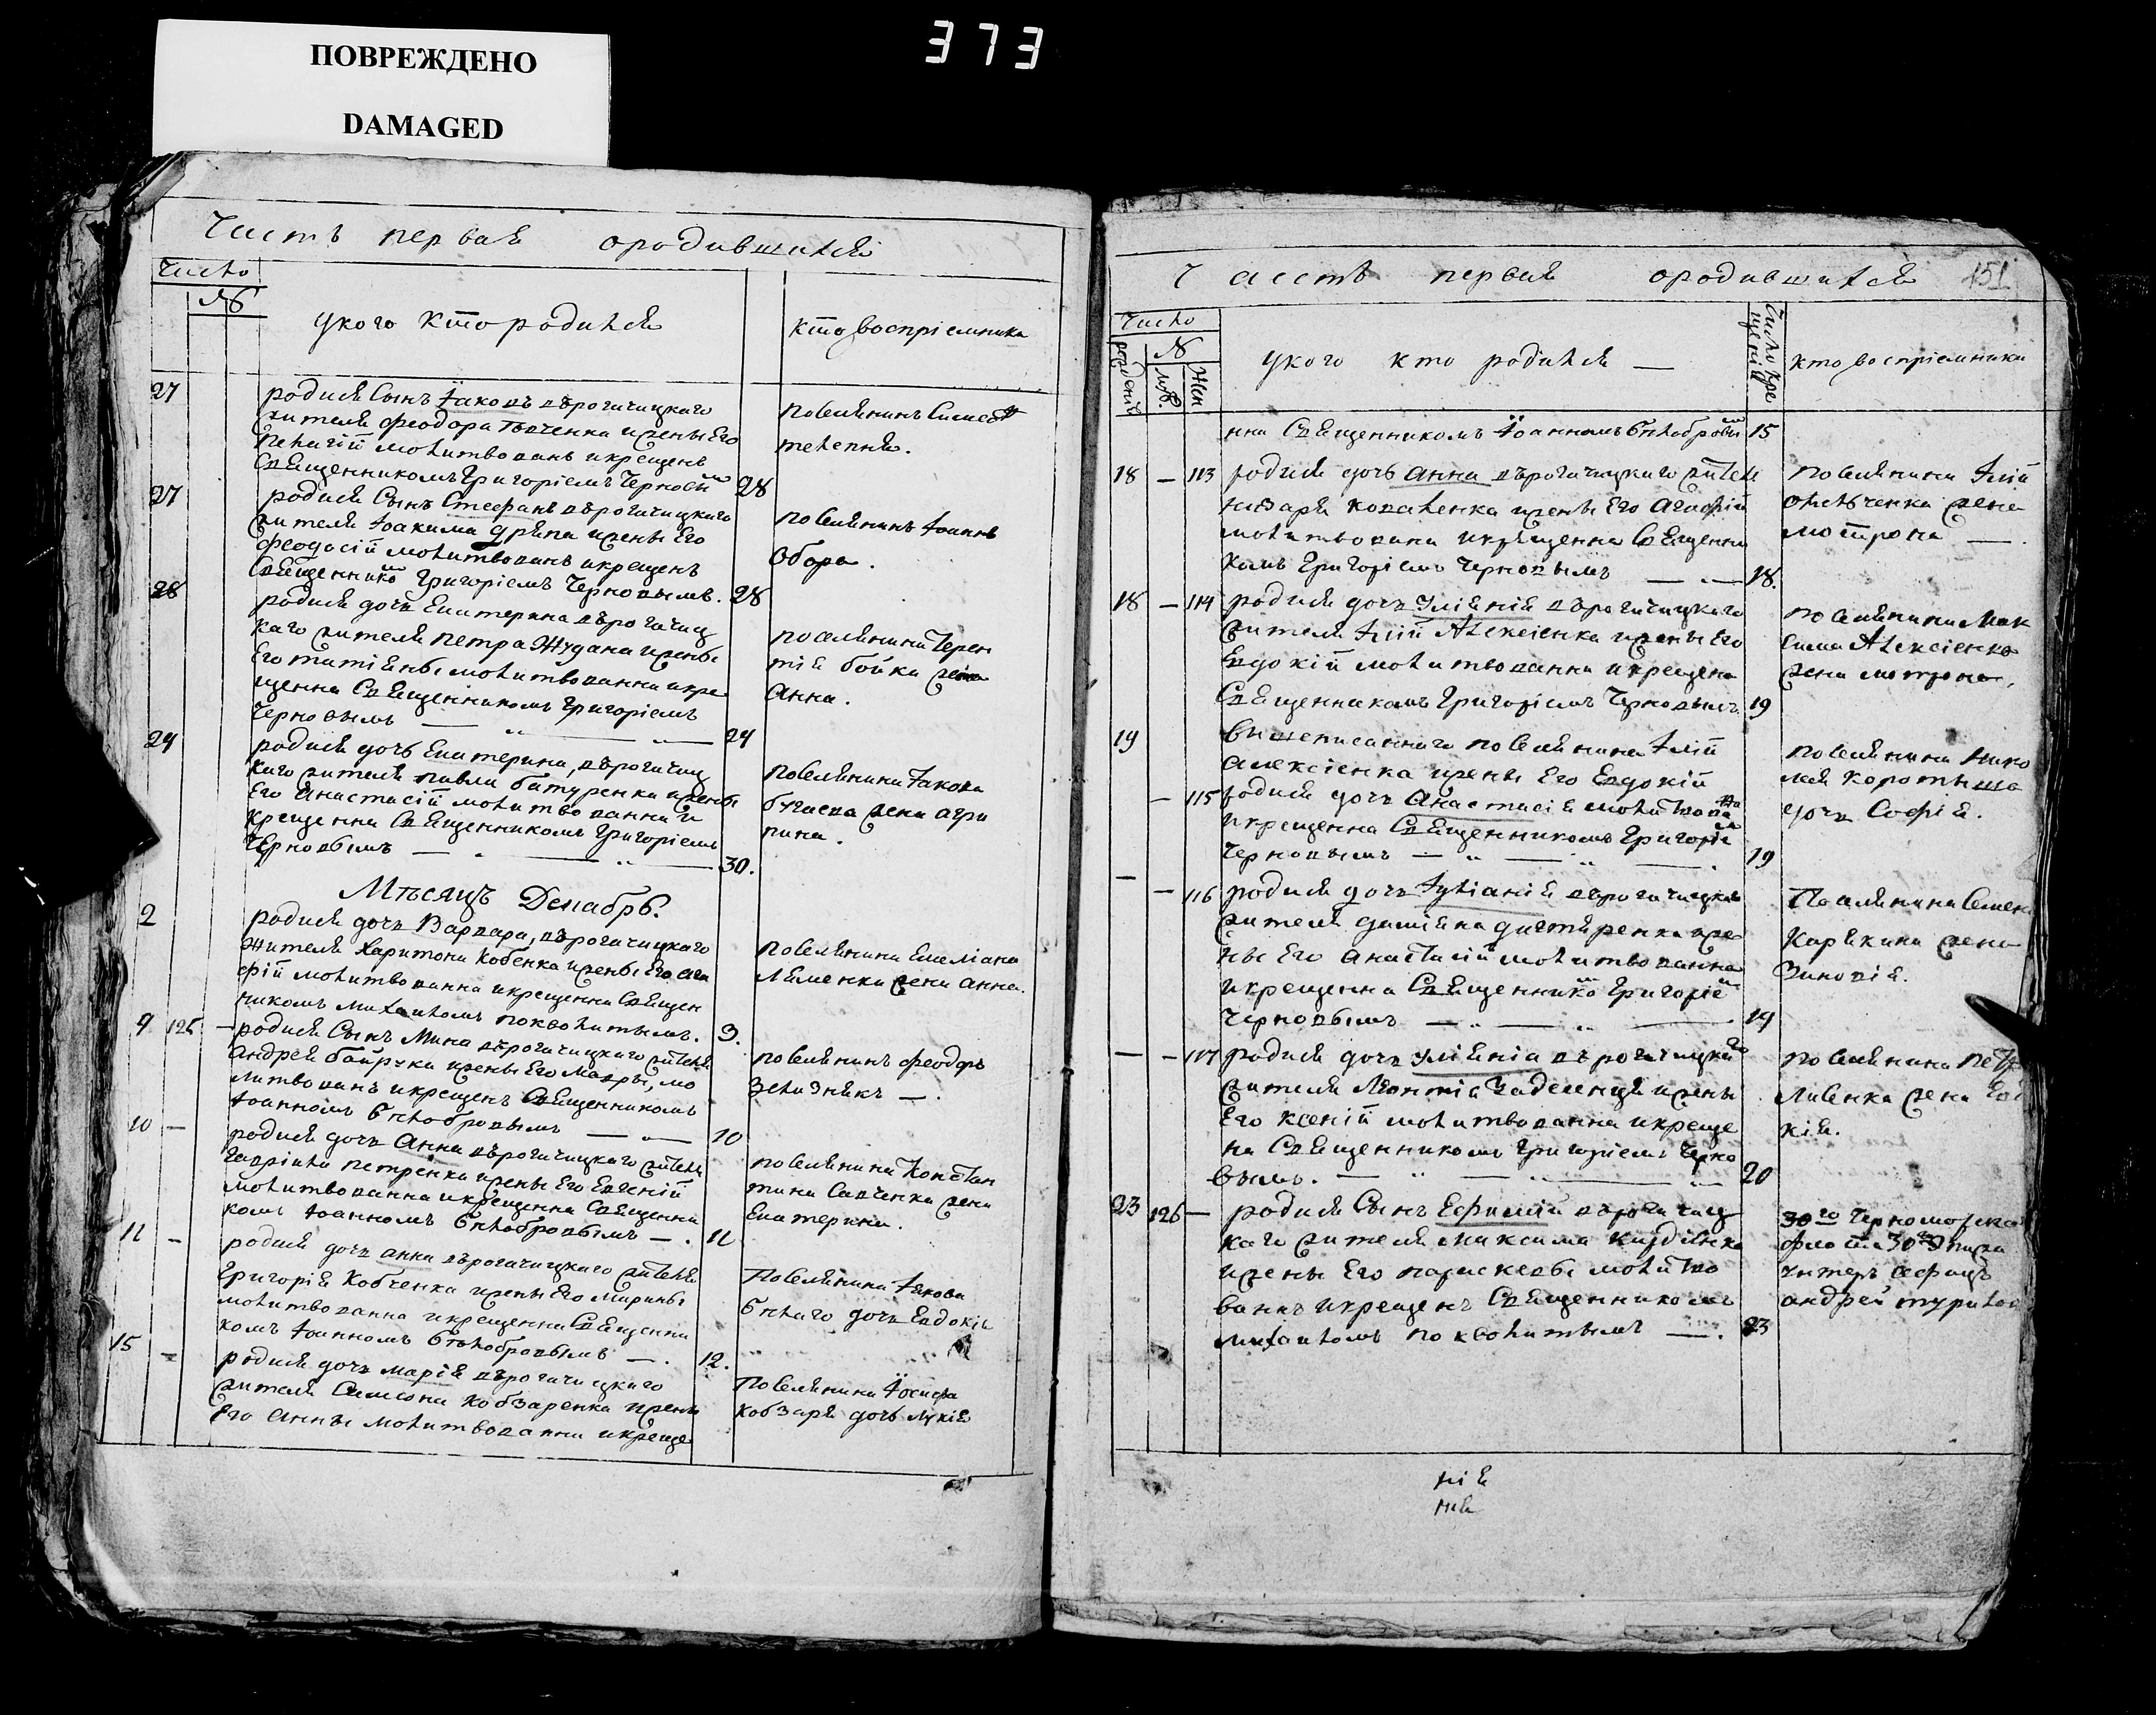 ПОВРЕЖДЕНО
DAMAGED
373
Часть первая ородившихся
Число
№
укого кто родился
кто восприемники
27
родися Сынъ Іаковъ върогачицкаго
жителя Феодора Ткченка ижены Его
Пелагїй молитвованъ икрещенъ
Священникомъ Григоріемъ Черновым
28
поселянинъ Симеон
телепня.
27
родися Сынъ Стефанъ върогачицкаго
жителя Іоакима ижены Его
Феодосїй молитвованъ икрещенъ
Священнико Григоріемъ Черновымъ.
28
поселянинъ Іоаннъ
Обора.
28
родися дочь Екатерина върогачиц
каго жителя Петра Жудана ижены
Его татіяны молитвованна икре
щенна Священникомъ Григоріемъ
Черновымъ
24
поселянина Терен
тія бойка жена
Анна.
24
родися дочь Екатерина, върогачиц
каго жителя павла батуренка ижены
Его Анастасїй молитвованна и
крещенна Священникомъ Григоріемъ
Черновымъ
30.
поселянина Іакова
жена агри
пина.
Мѣсяцъ Декабрь.
2
родися дочь Варвара, върогачицкаго
жителя Харитона Кобенка ижены Его ага
фїй молитвованна икрещенна Священ
никомъ Михаиломъ Покволитымъ.
3.
поселянина Емеліана
Лященка жена Анна.
9 125 —
родися Сынъ Мина върогачицкаго жителя
Андрея ижены Его Мавры, мо
литвованъ икрещенъ Священникомъ
Іоанномъ Бѣлобровымъ
10
поселянинъ Феодоръ
Зелѣзнякъ —.
10 —
родися дочь Анна върогачицкаго жителя
Гавріила петренка ижены Его Евгенїй
молитвованна икрещенна Священни
комъ Іоанномъ Бѣлобровымъ —.
11
поселянина Констан
тина Савченка жена
Екатерина.
11 —
родися дочь анна върогачицкаго жителя
Григорія Кобченка ижены Его Марины
молитвованна икрещенна Священни
комъ Іоанномъ Бѣлобровымъ —.
12.
Поселянина Іакова
Бѣлаго дочь Евдокія
15 —
родися дочь марія върогачицкаго
жителя Симеона Кобзаренка ижены
Его Анны молитвованна икреще
Поселянина Іосифа
Кобзаря дочь Лукія
Часть первая ородившихся
151
Число
рожденій
№
муж.
Жен
укого кто родился —
Число кре
щенія
кто восприемники
нна Священникомъ Іоанномъ Бѣлобровы
15
18 — 113
родися дочь анна върогачицкаго жителя
назаря коваленка ижены Его Агафїй
молитвована икрещенна Священни
комъ Григоріемъ Черновымъ
18.
поселянина Илїй
Омельченка жена
мотрона —.
18 — 114
родися дочь Уліянія върогачицкаго
жителя Илїй Алексіенка ижены Его
Евдокїй молитвованна икрещена
Священникомъ Григоріемъ Черновымъ
19
поселянина Мак
сима Алексіенка
жена мотрона,
19
Вышеписаннаго поселянина Илїй
Алексіенка ижены Его Евдокїй
— 115
родися дочь Анастасія молитвова на
икрещенна Священникомъ Григоріе м
Черновымъ
19
поселянина Нико
лая Коротыша
дочь Софія.
— — 116
родися дочь Іуліанія върогачицкаго
жителя даміяна дегтяренка иже
ны Его Анастасїй молитвованна
икрещенна Священнико Григоріе
Черновымъ
19
Поселянина Семена
Карякина жена
Зиновія.
— — 117
родися дочь уліяніа върогачицка го
жителя Леонтіа Заделенця ижены
Его ксенїй молитвованна икреще
на Священникомъ Григоріемъ Черно
вымъ.
20
поселянина Петра
Ливенка жена
кія.
23 126 —
родися Сынъ Ефимїй върогачиц
каго жителя максима
ижены Его параскевы молитво
ванъ икрещенъ Священникомъ
михаиломъ поквалитымъ —.
23
30го Черноморска
флота 30го Экипа
унтеръ афицъ
андрей
нія
ния